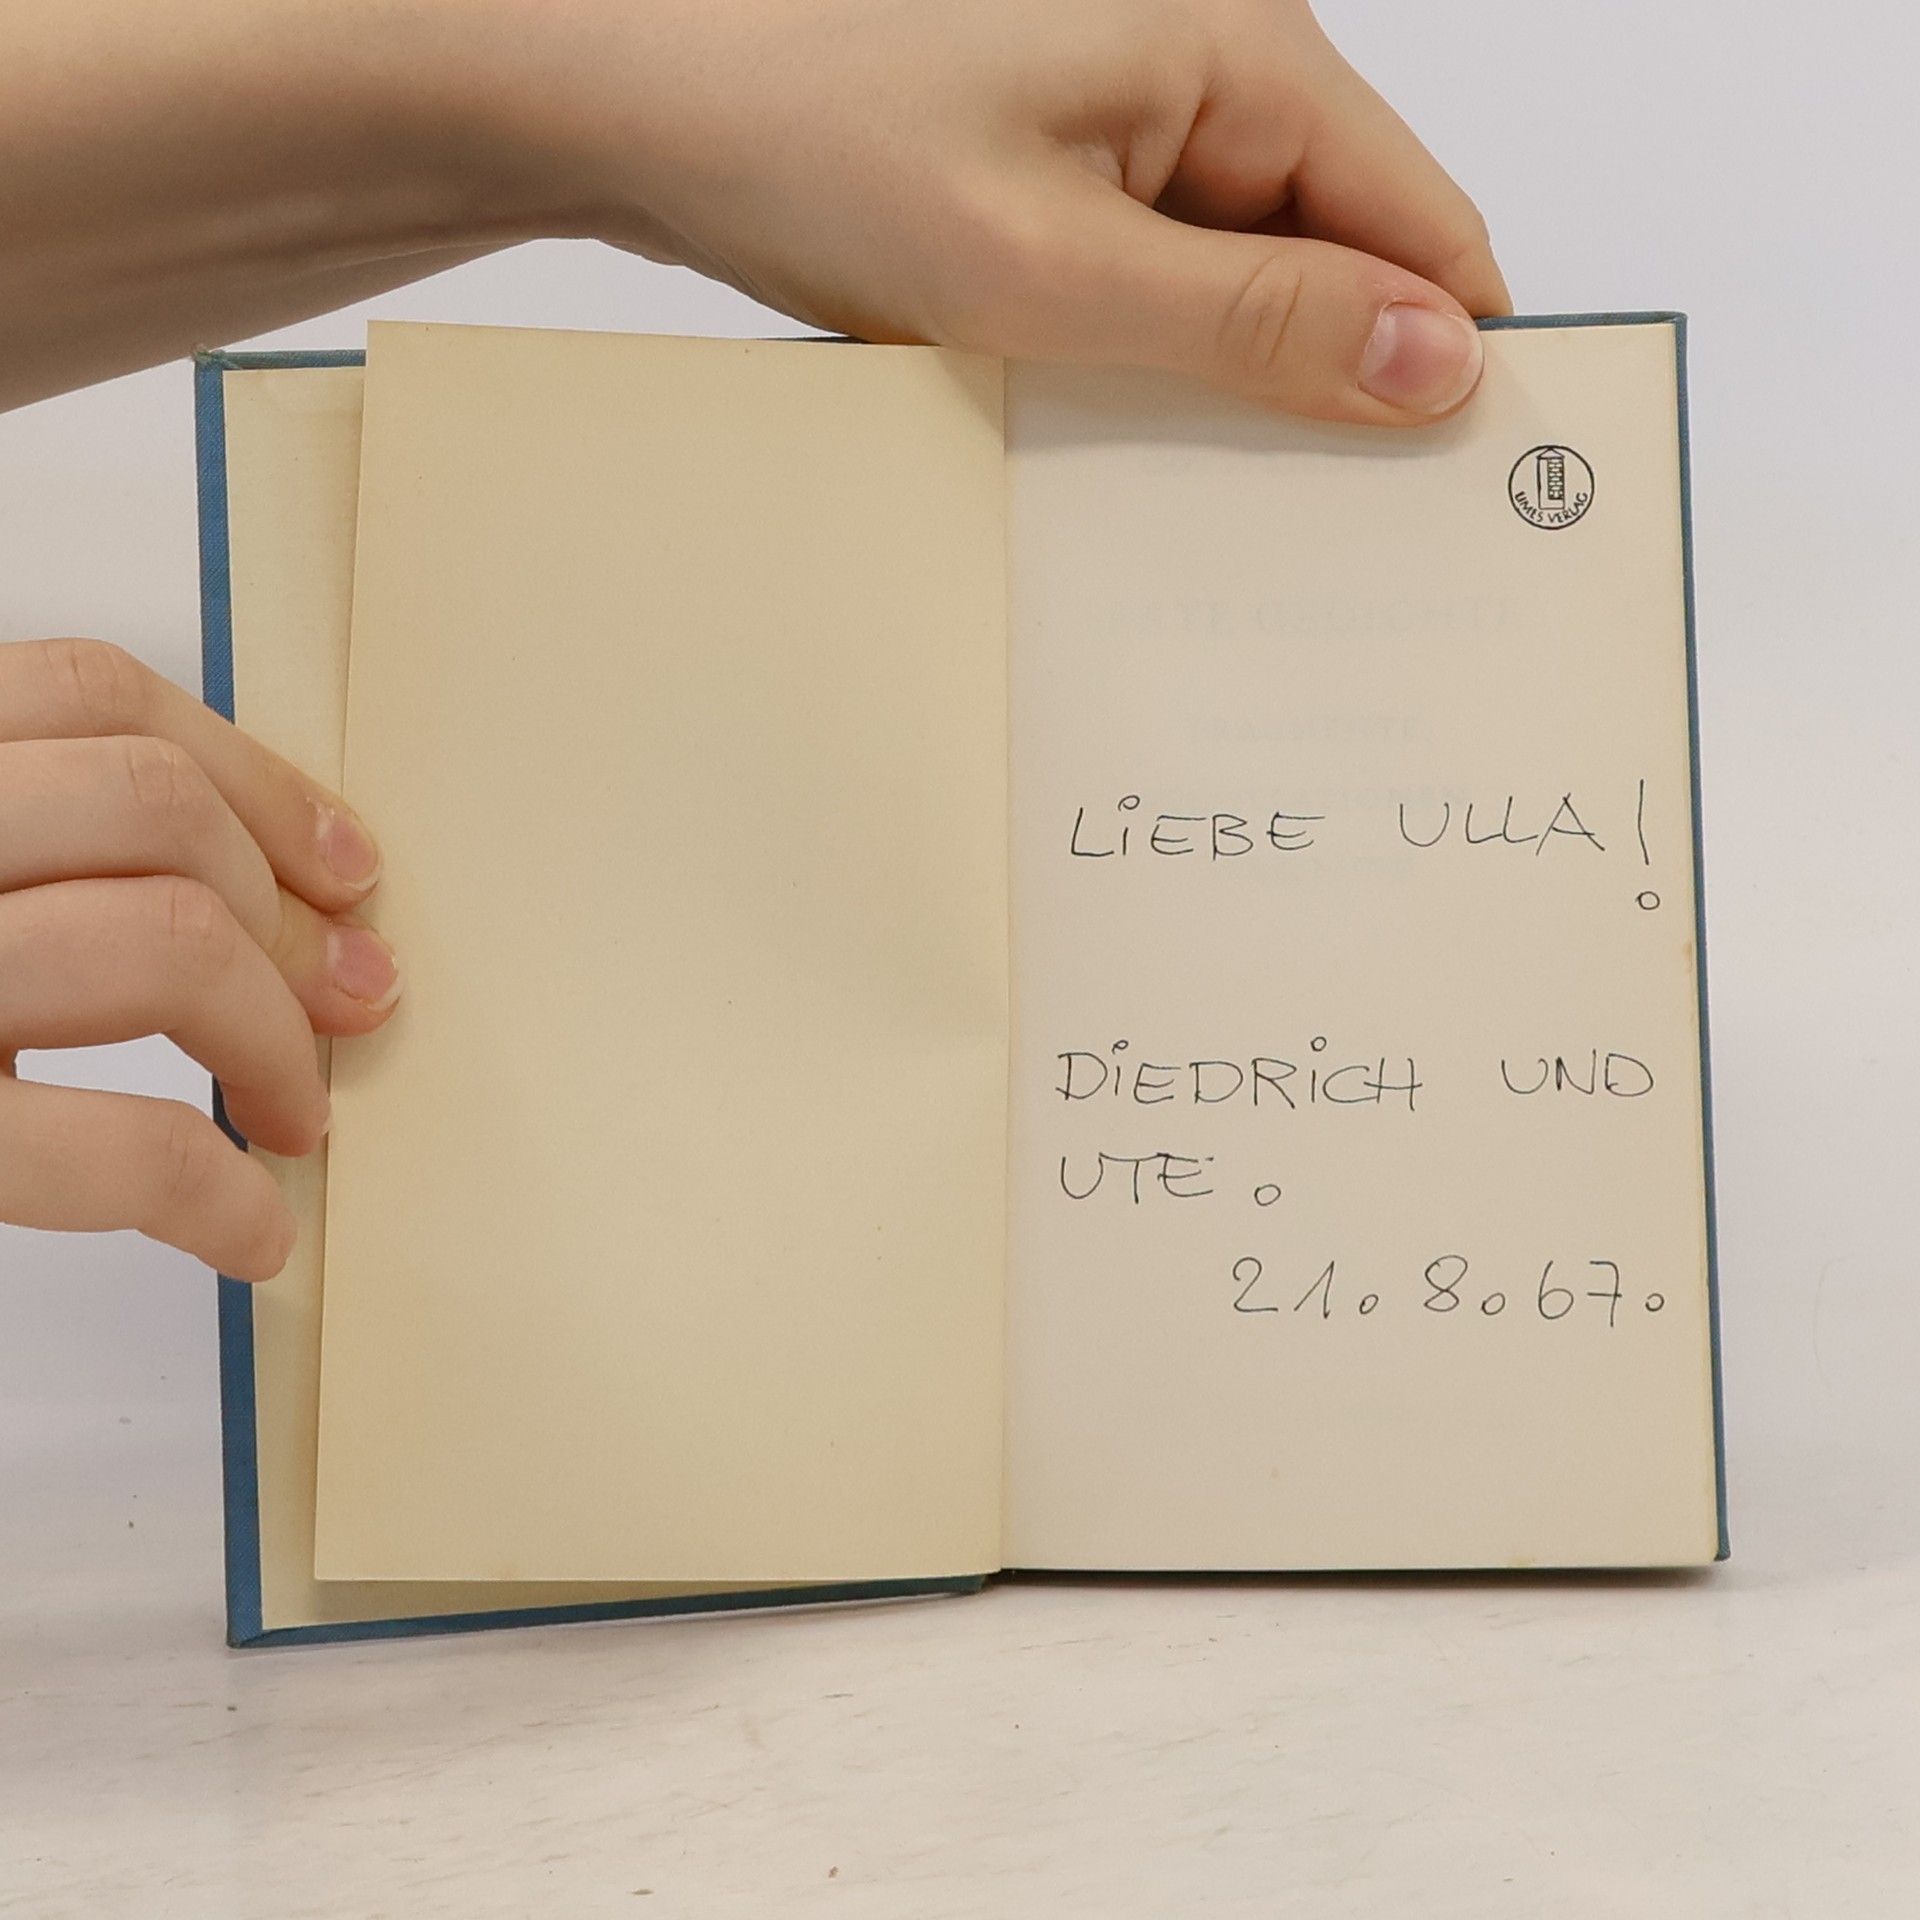 LIMES VERLAG
LiEBE ULLA!
DiEDRiCH UND
UTE.
21.8.67.